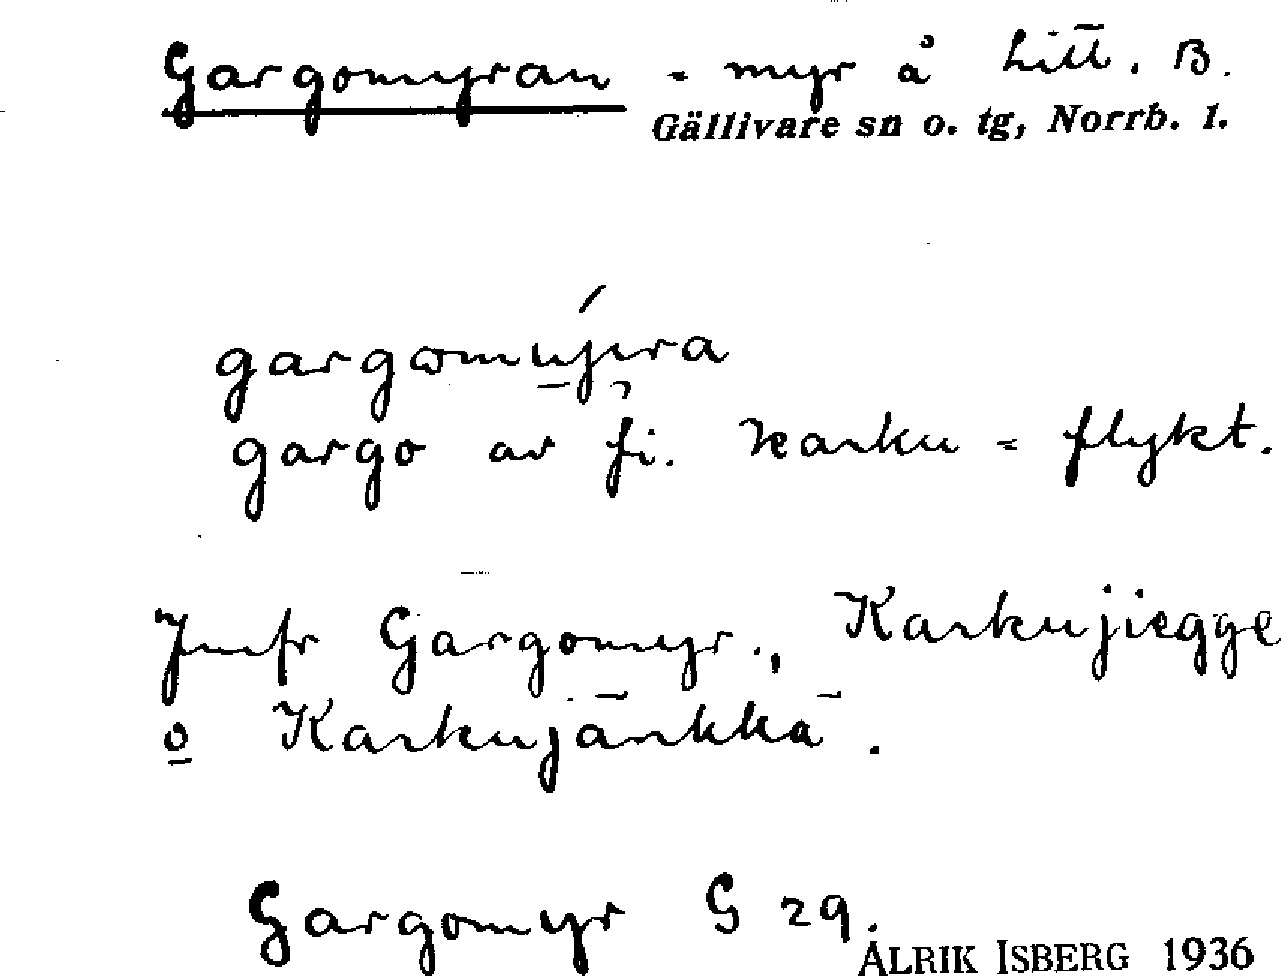 Gargomyran - myr å Litt. B.
Gällivare sn o. tg, Norrb. l.
gargo av fi. karku = flykt.
Jmfr Gargomyr., Karkujiegge
o Karkujänkkä.
Gargomyr G 29.
ALRIK ISBERG 1936